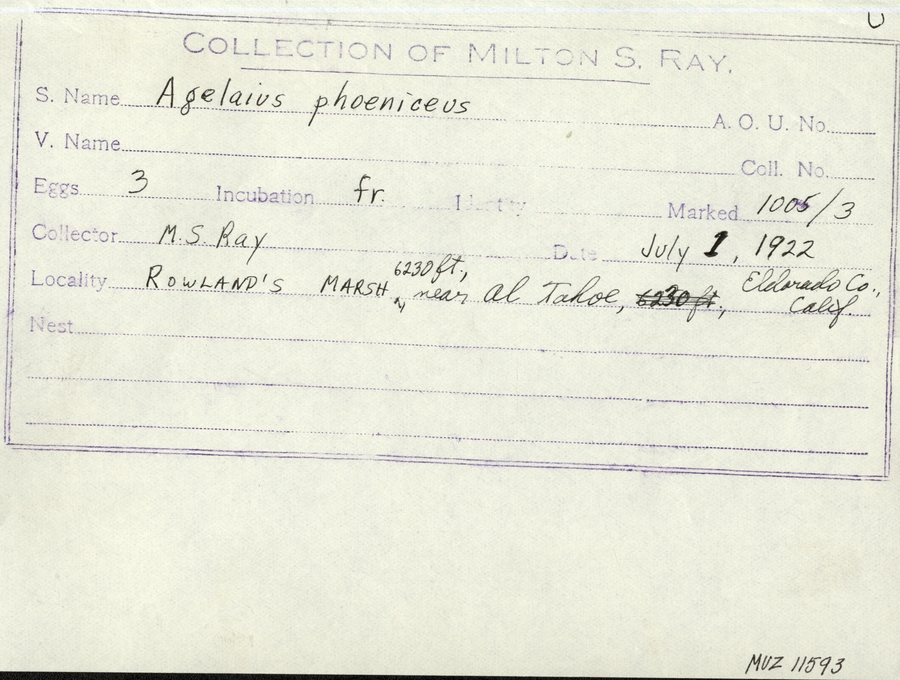 COLLECTION OF MILTON S. RAY.
S. Name Agelaius phoeniceus A. O. U. No.
V. Name Coll. No.
Eggs 3 Incubation fr. Identity Marked 1005/3
Collector M.S. Ray Date July 1, 1922
Locality ROWLAND'S MARSH, 6230 ft., near Al Tahoe, 6230 ft., Eldorado Co., Calif.
Nest
MVZ 11593